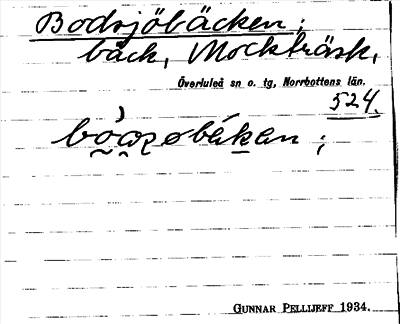 Bodsjöbäcken;
bäck, Mockträsk,
Överluleå sn o. tg, Norrbottens län.
524.
GUNNAR PELLIJEFF 1934.